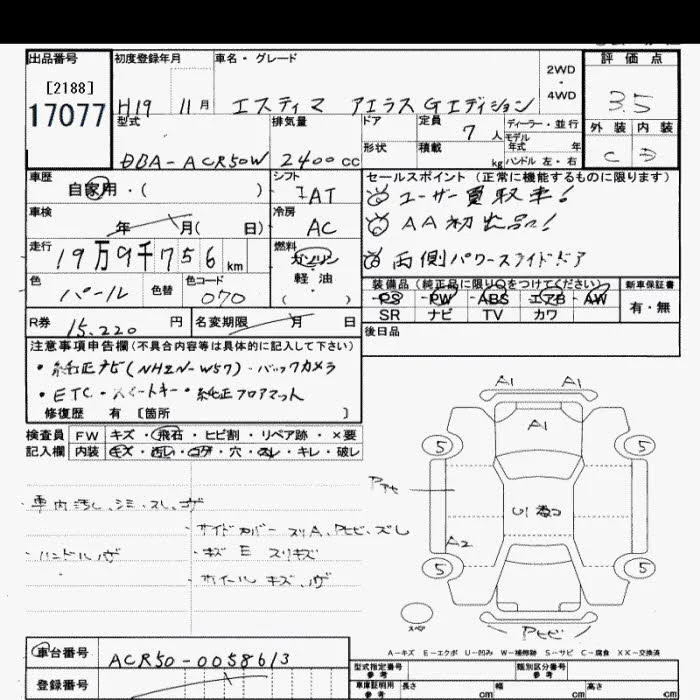 出品番号 初度登録年月 車名・グレード 評価点
[2188] 2WD・4WD
17077 H19 11月 エスティマ アエラスGエディション 3.5
型式 排気量 ドア 定員 7人 ディーラー・並行 外装 内装
モデル年式 年
DBA-ACR50W 2400cc 形状 積載 kg ハンドル 左・右 C D
車歴 シフト セールスポイント(正常に機能するものに限ります)
自家用・( ) IAT ユーザー買取車!
車検 冷房 AA初出品!
年 月( 日) AC
走行 燃料 両側パワースライドドア
19万9千756km ガソリン
色 色替 色コード 軽油 装備品(純正品に限り○をつけてください) 新車保証書
パール 070 ( ) PS PW ABS エアB AW 有・無
SR ナビ TV カワ
R券 15,220円 名変期限 月 日 後日品
注意事項申告欄(不具合内容等は具体的に記入して下さい)
・純正ナビ(NHZN-W57)・バックカメラ
・ETC・スマートキー・純正フロアマット
修復歴 有 [箇所 ]
検査員 FW キズ・飛石・ヒビ割・リペア跡・×要
記入欄 内装 キズ・汚レ・コゲ・穴・スレ・キレ・破レ
A1 A1
A1
5 5
・車内汚れ、シミ、スレ、コゲ
・サイドカバー スリA、Pヒビ、ズレ
・ハンドル
・キズ E スリキズ
・ホイール キズ
U1
A2
5 5
スペア
Pヒビ
A-キズ E-エクボ U-凹み W-補修跡 S-サビ C-腐食 XX-交換済
車台番号 ACR50-0058613
型式指定番号 参考 類別区分番号 参考
登録番号 車庫証明用 参考 長さ cm 幅 cm 高さ cm